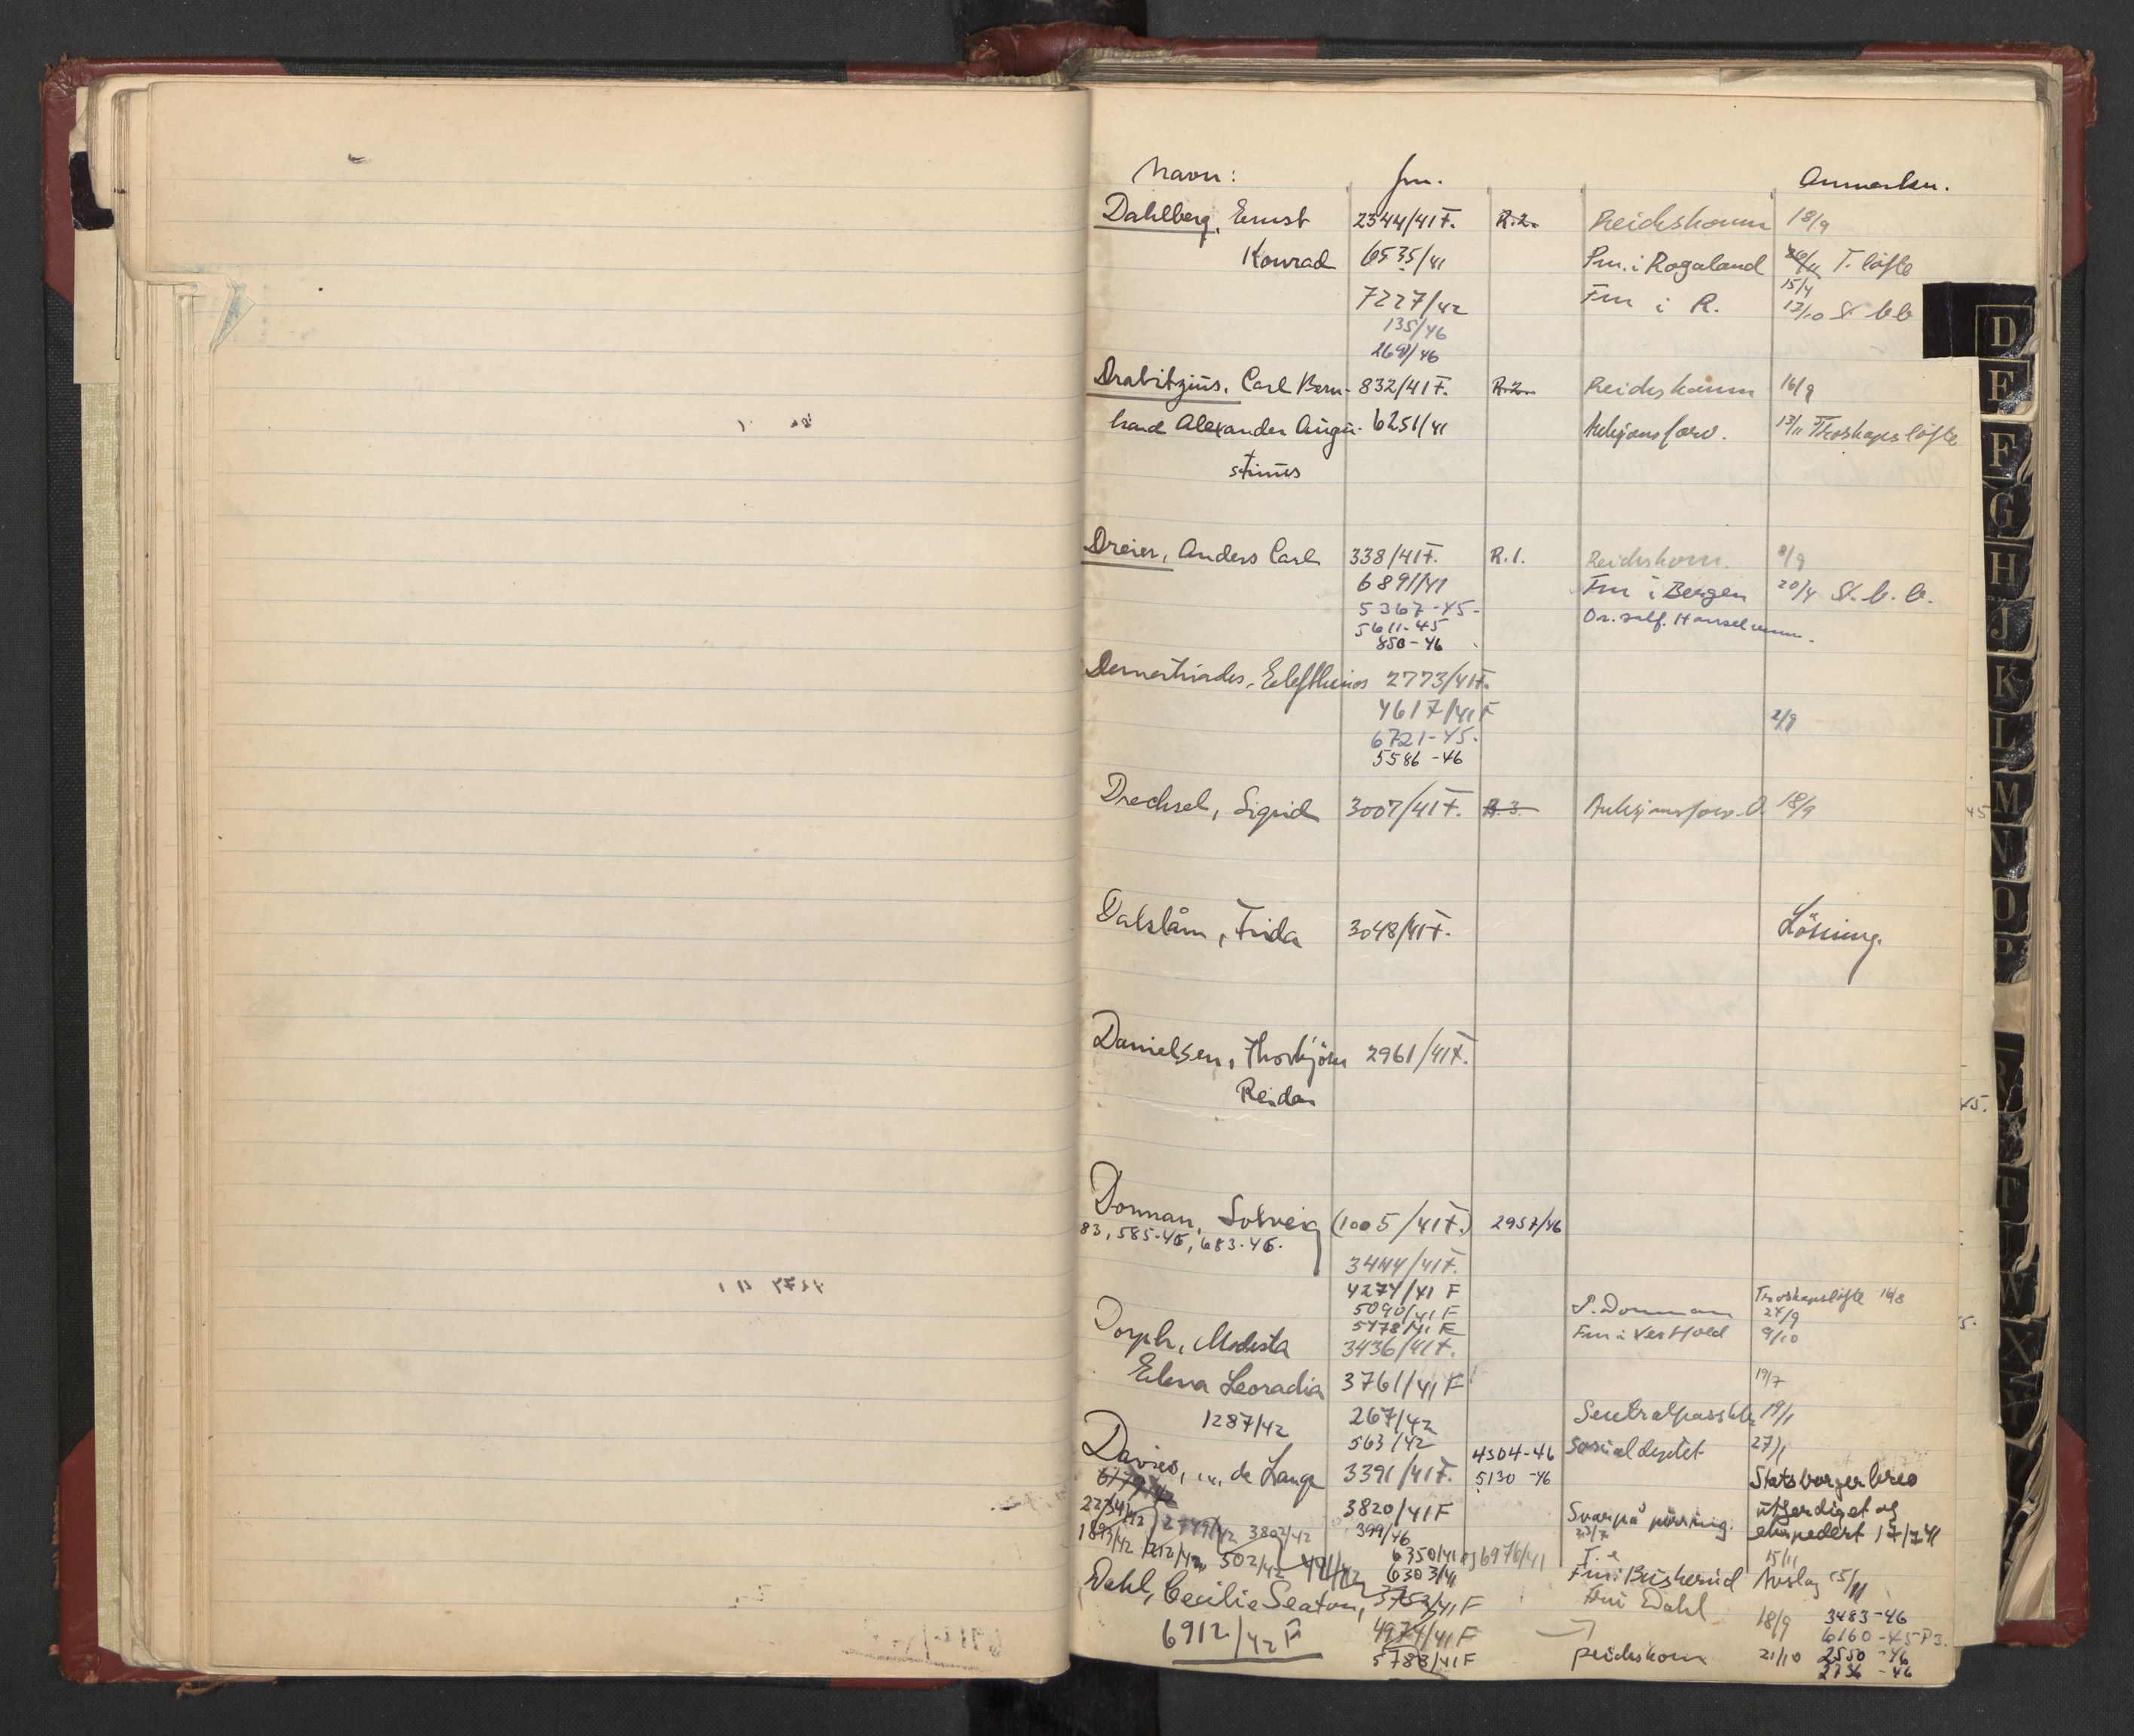 Navn: Jnr. Anmerkn.
Dahlberg, Ernst 2544/41 F. R.2. Reichskomm 18/9
Konrad 6535/41 Pm. i Rogaland T. löfte
15/4
7227/42 Fm i R. 17/10 St. b b
135/46
269/46
Drabitzius, Carl Bern- 832/41 F. R.2. Reichskomm 16/9
hard Alexander Augu- 6251/41 Auksjonsforv. 13/11 Troskapslöfte
stinus
Dreier, Anders Carl 338/41 F. R.1. Reichskom. 8/9
6891/41 Fm i Bergen 20/4 St. b. b.
5367-45-
5611-45
850-46
Demetriades, Eleftherios 2773/41 F.
4617/41 F 2/9
6721-45.
5586-46
Drechsel, Sigrid 3007/41 F. R.3. Auksjonsforv. O. 18/9
Dalslåm, Frida 3048/41 F. Lösning.
Danielsen, Thorbjörn 2961/41 F.
Reidar
Donnan, Solveig (1005/41 F.) 2957/46
83, 585-46, 683-46.
3444/41 F.
4274/41 F Troskapslöfte 16/8
5090/41 F S. Donnan 24/9
5478/41 F Fm i Vestfold 9/10
Dorph, Modesta 3436/41 F.
Elena Leoradia 3761/41 F 19/7
1287/42 267/42 Sentralpassktr 19/1
563/42 4304-46 Sosialdeptet 27/1
Davies, de Lange 3391/41 F. 5130-46 Statsborgerbrev
6179/42
3820/41 F Svar på purring. utferdiget og
2749/42 3802/42 399/46 23/7 ekspedert 17/7 41
1893/42 212/42 502/42 6350/41 og 6976/41 15/11
6303/41 Fm i Buskerud Avslag 15/11
Dahl, Cecilie Seaton, 3753/41 F Fru Dahl 18/9 3483-46
6912/42 F 4974/41 F 6160-45 P3.
5788/41 F Reichskom 21/10 2550-46
2736-46
D
E
F
G
H
J
K
L
M
N
O
P
R
T
W
X